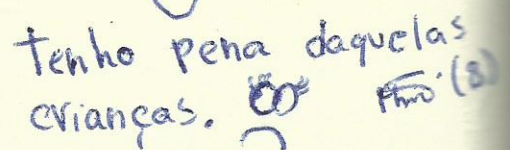 tenho pena daquelas
crianças. (8)